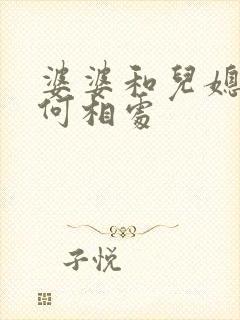 婆婆和兒媳
何相處
子悅